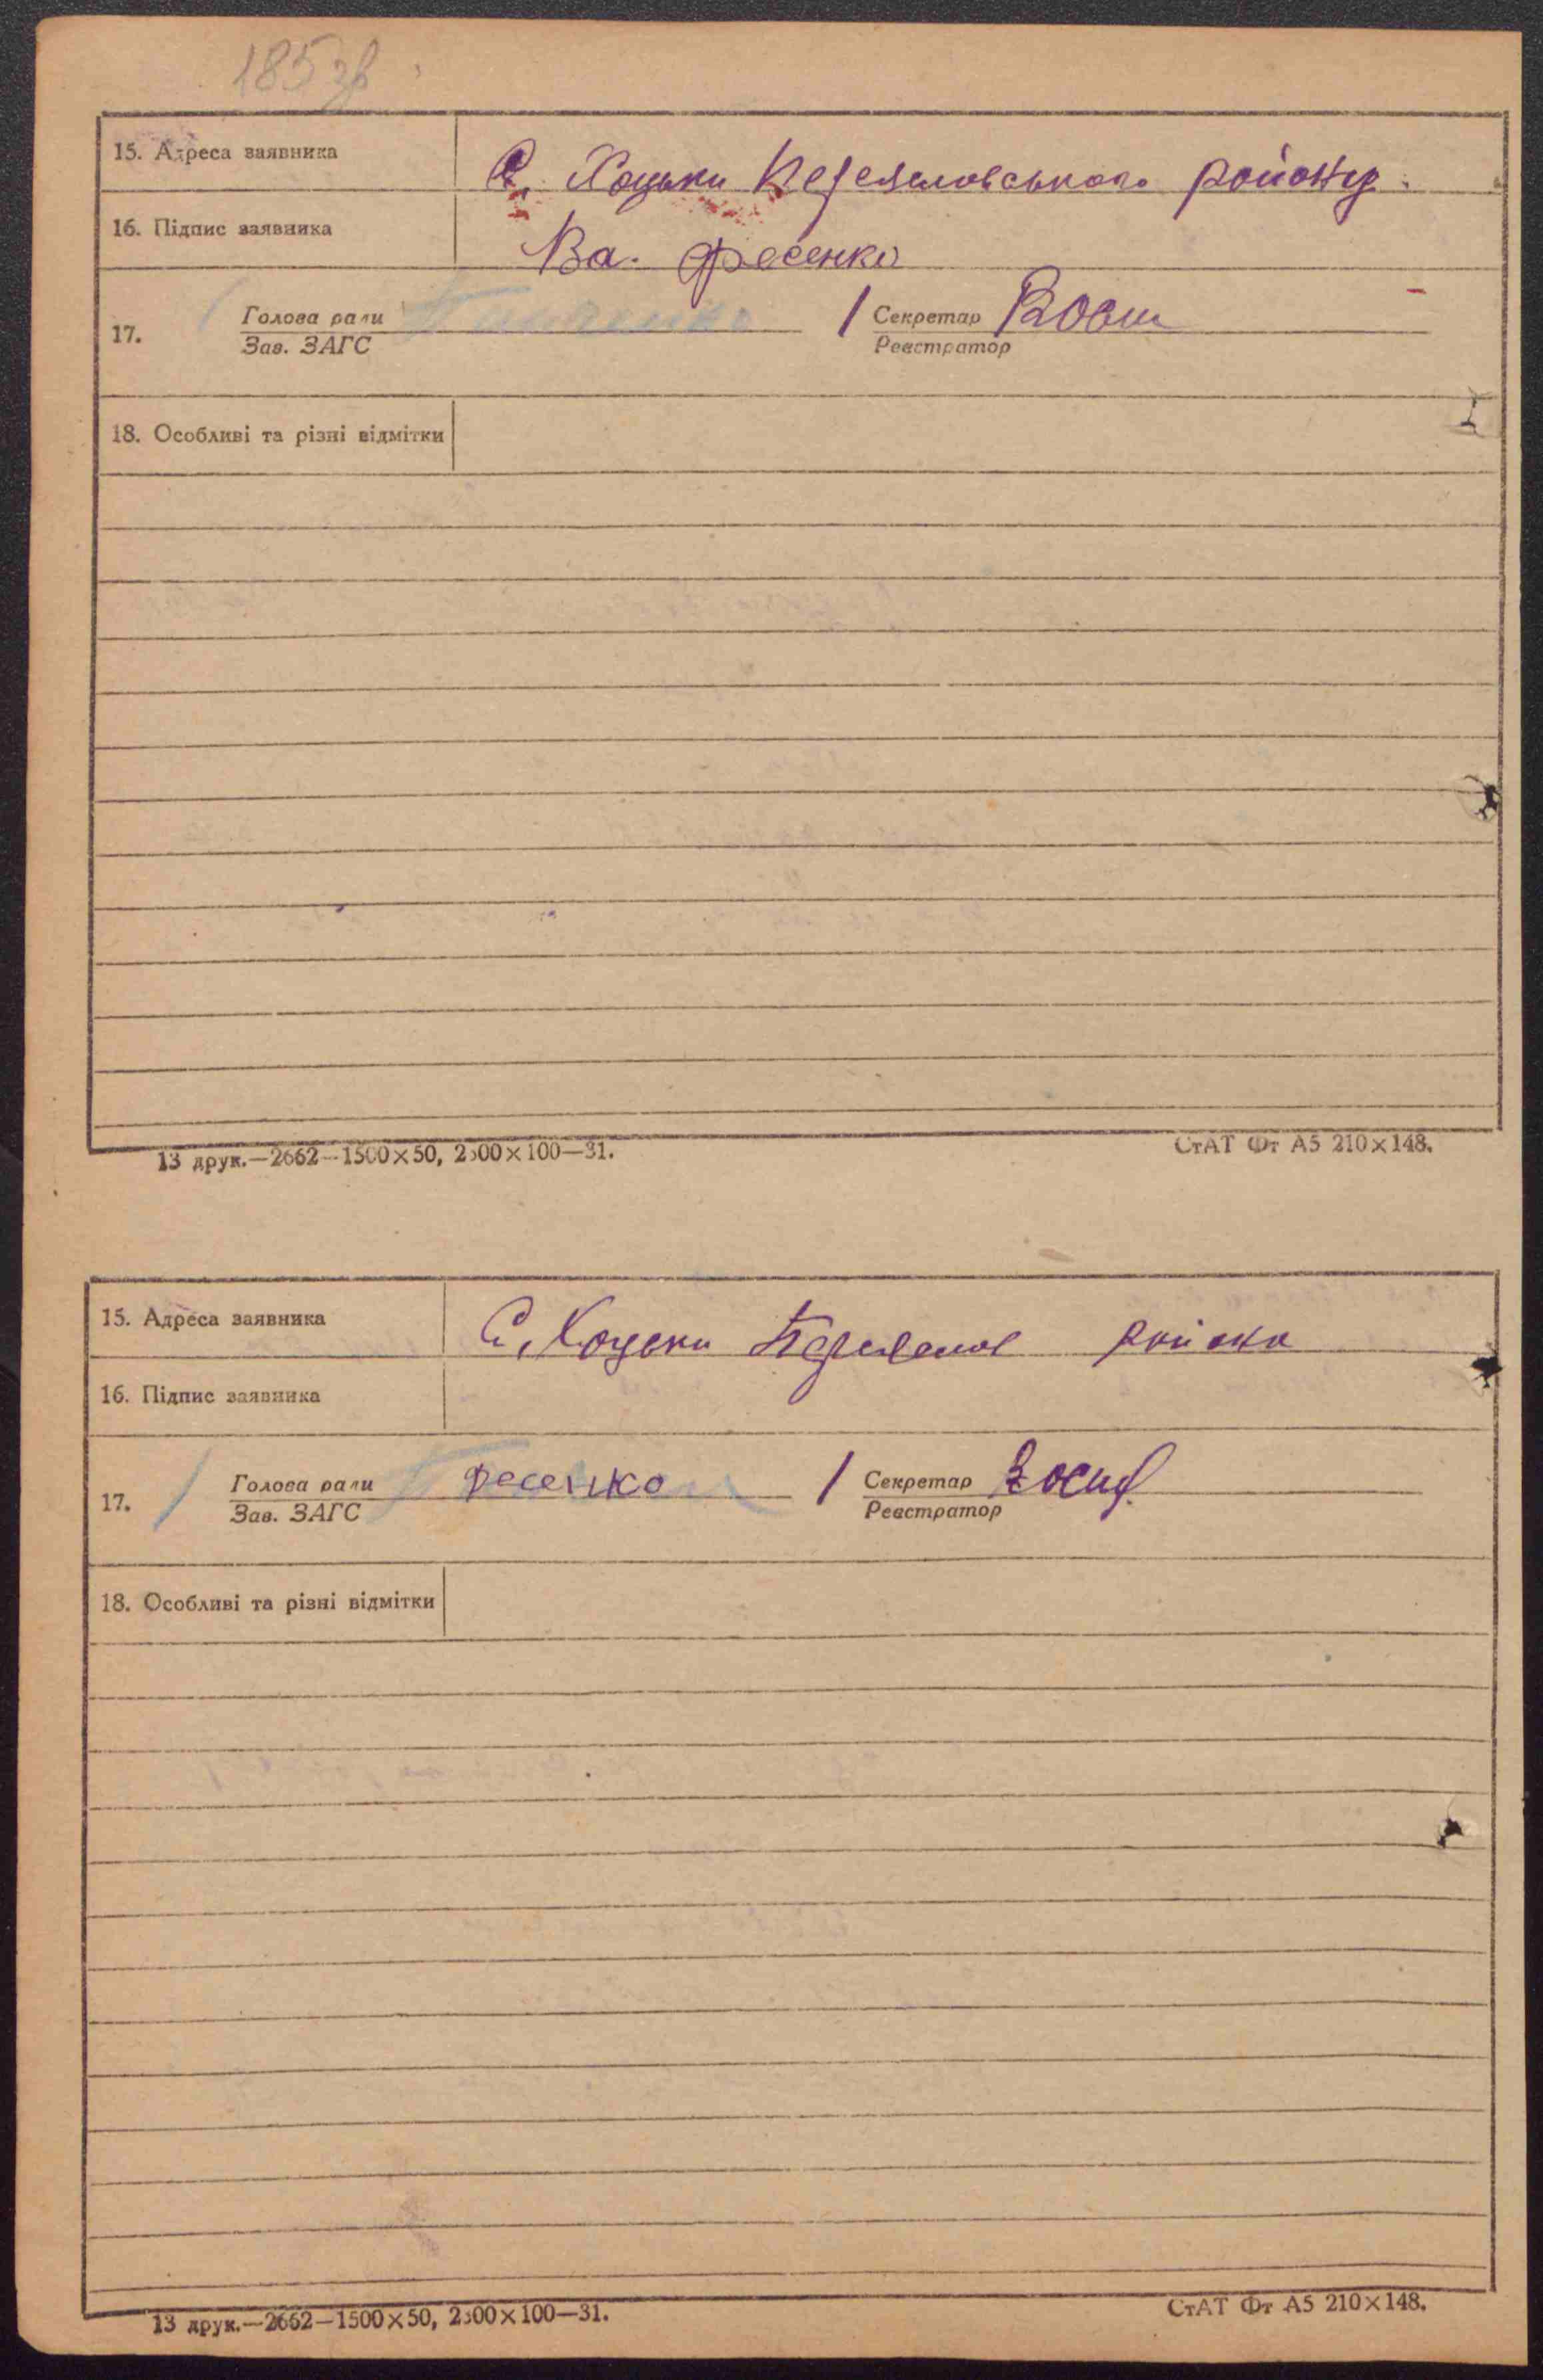 185 зв
15. Адреса заявника С. Хоцьки Переяславського району.
16. Підпис заявника Ва. Фесенко
17. Голова ради Секретар
Зав. ЗАГС Реєстратор
18. Особливі та різні відмітки
13 друк.—2662—1500×50, 2500×100—31. СтАТ Фт А5 210×148.
15. Адреса заявника С. Хоцьки
16. Підпис заявника
17. Голова ради Фесенко Секретар
Зав. ЗАГС Реєстратор
18. Особливі та різні відмітки
13 друк.—2662—1500×50, 2500×100—31. СтАТ Фт А5 210×148.